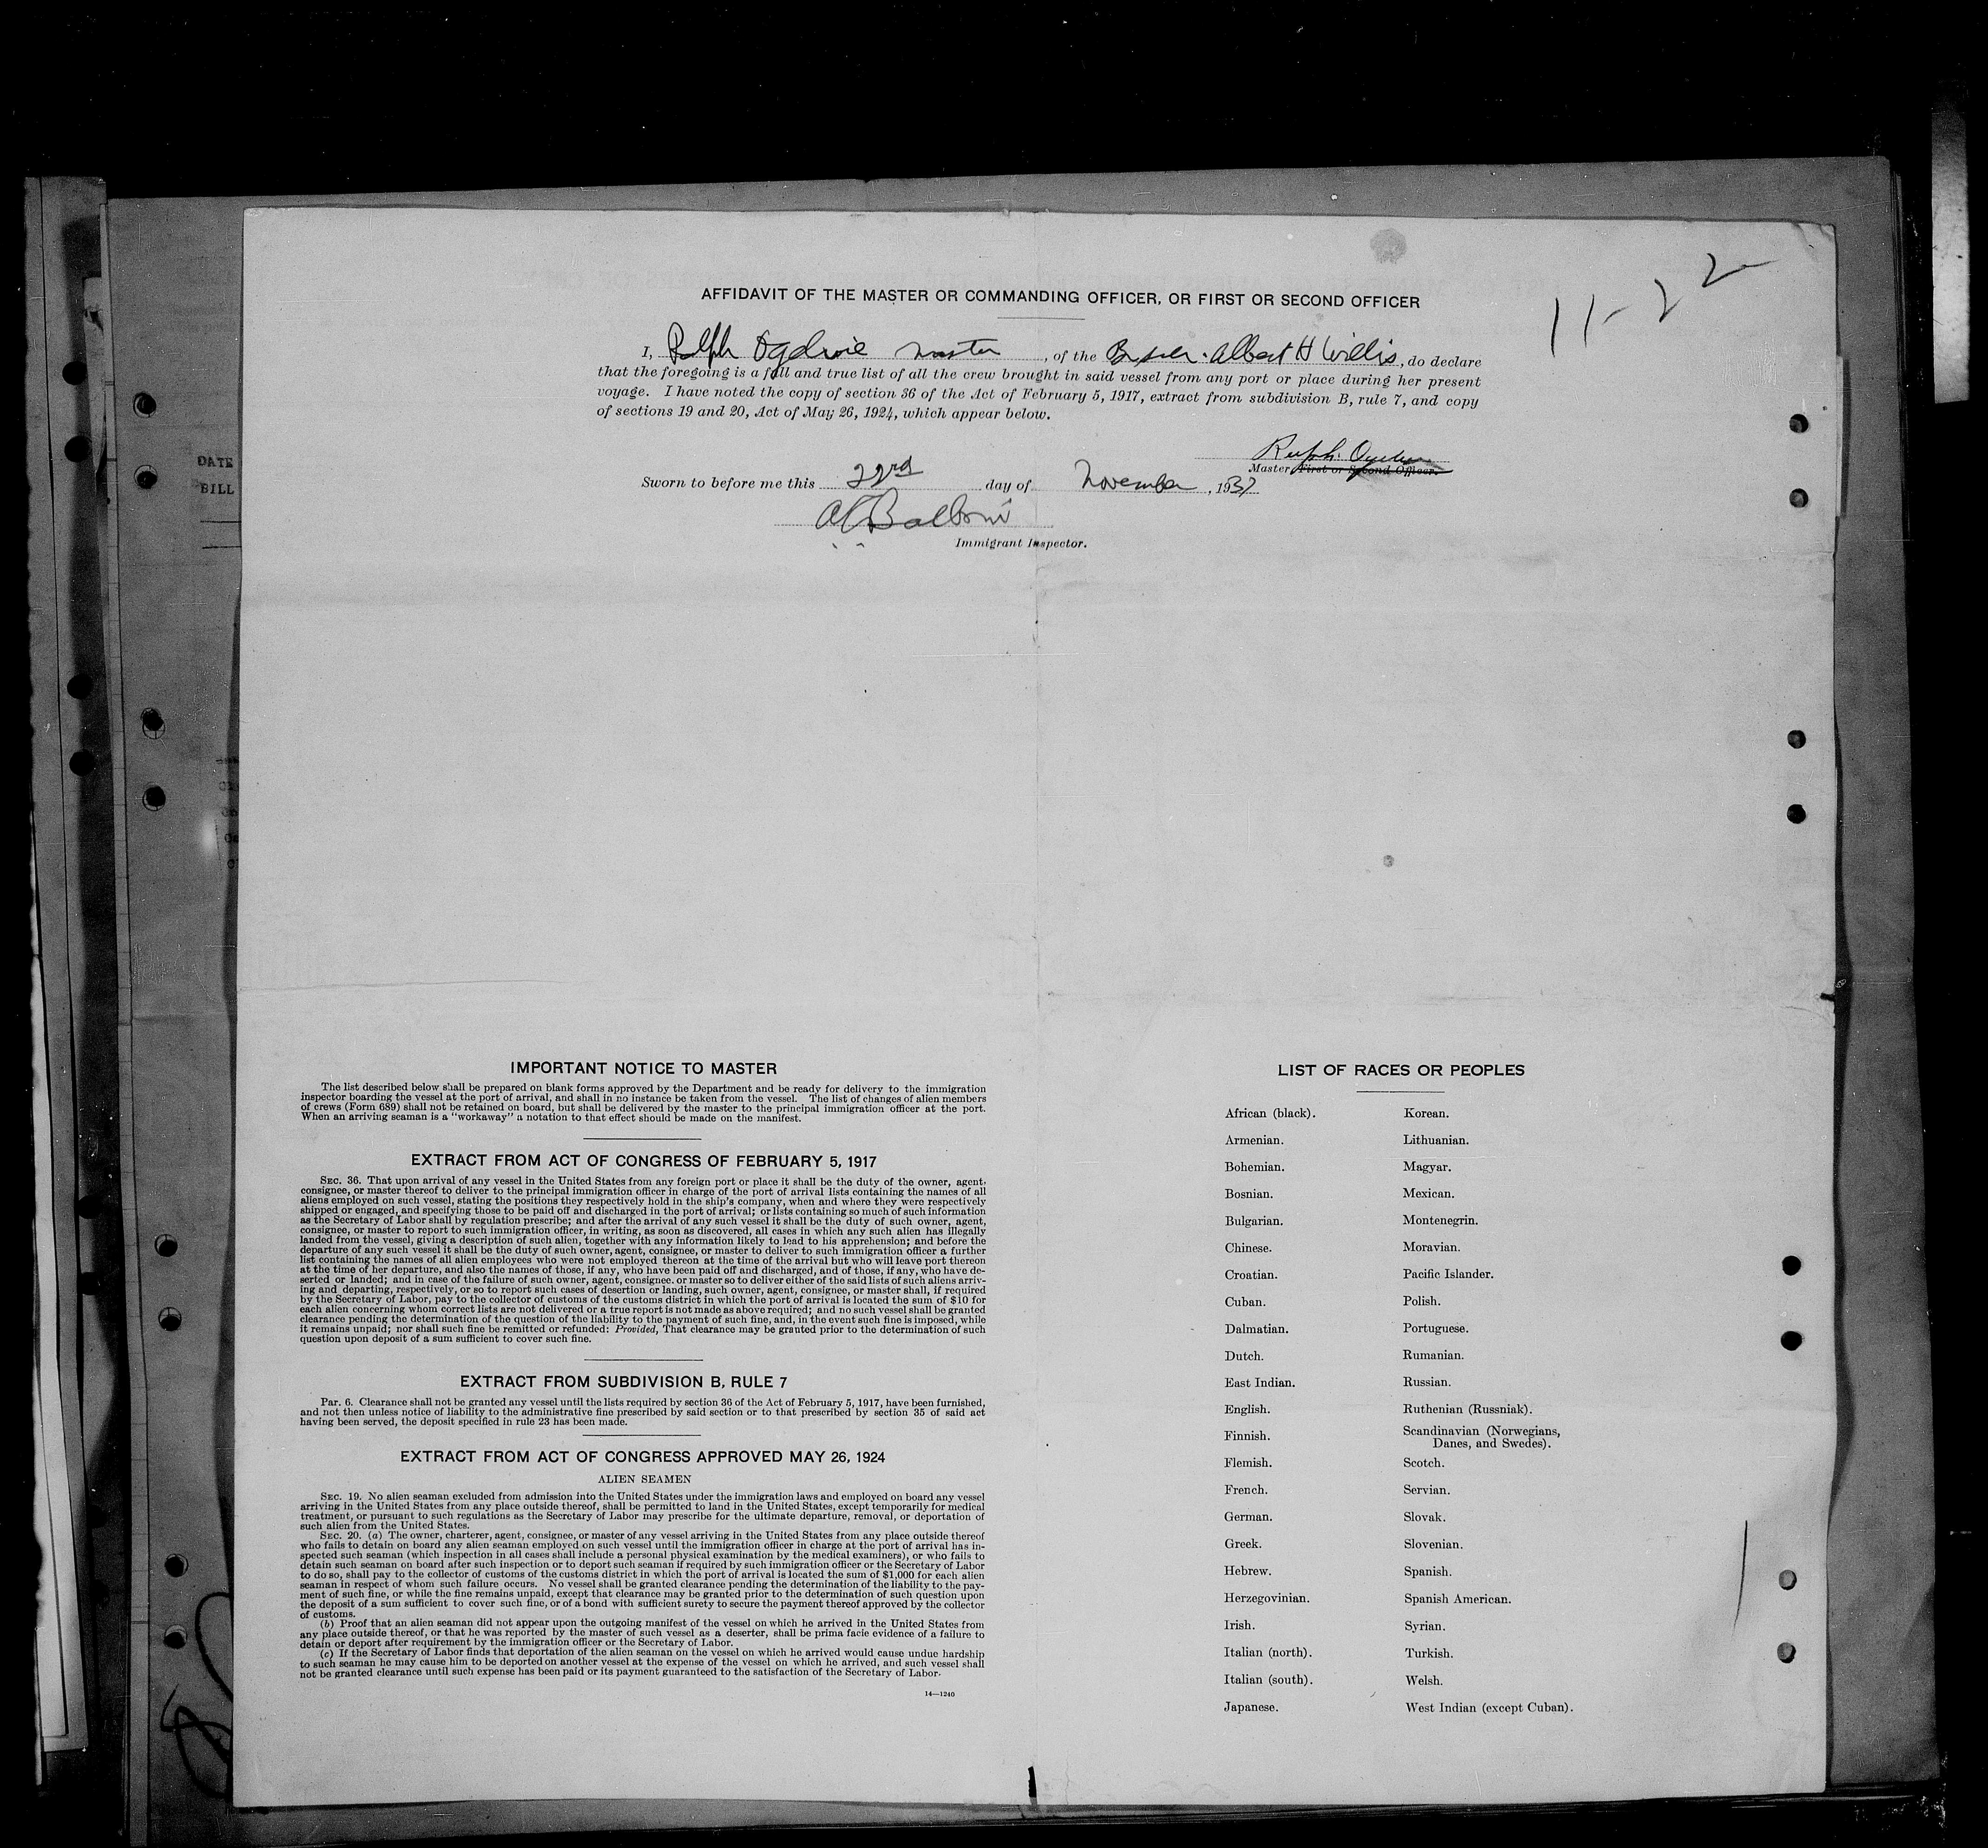 11-22
AFFIDAVIT OF THE MASTER OR COMMANDING OFFICER, OR FIRST OR SECOND OFFICER
I, Ralph Ogilvie master, of the Br. schr. Albert H Willis, do declare
that the foregoing is a full and true list of all the crew brought in said vessel from any port or place during her present
voyage. I have noted the copy of section 36 of the Act of February 5, 1917, extract from subdivision B, rule 7, and copy
of sections 19 and 20, Act of May 26, 1924, which appear below.
Ralph
Master, First or Second Officer.
Sworn to before me this 22nd day of November, 1937
Immigrant Inspector.
DATE
BILL
IMPORTANT NOTICE TO MASTER
The list described below shall be prepared on blank forms approved by the Department and be ready for delivery to the immigration
inspector boarding the vessel at the port of arrival, and shall in no instance be taken from the vessel. The list of changes of alien members
of crews (Form 689) shall not be retained on board, but shall be delivered by the master to the principal immigration officer at the port.
When an arriving seaman is a "workaway" a notation to that effect should be made on the manifest.
EXTRACT FROM ACT OF CONGRESS OF FEBRUARY 5, 1917
SEC. 36. That upon arrival of any vessel in the United States from any foreign port or place it shall be the duty of the owner, agent,
consignee, or master thereof to deliver to the principal immigration officer in charge of the port of arrival lists containing the names of all
aliens employed on such vessel, stating the positions they respectively hold in the ship's company, when and where they were respectively
shipped or engaged, and specifying those to be paid off and discharged in the port of arrival; or lists containing so much of such information
as the Secretary of Labor shall by regulation prescribe; and after the arrival of any such vessel it shall be the duty of such owner, agent,
consignee, or master to report to such immigration officer, in writing, as soon as discovered, all cases in which any such alien has illegally
landed from the vessel, giving a description of such alien, together with any information likely to lead to his apprehension; and before the
departure of any such vessel it shall be the duty of such owner, agent, consignee, or master to deliver to such immigration officer a further
list containing the names of all alien employees who were not employed thereon at the time of the arrival but who will leave port thereon
at the time of her departure, and also the names of those, if any, who have been paid off and discharged, and of those, if any, who have de-
serted or landed; and in case of the failure of such owner, agent, consignee. or master so to deliver either of the said lists of such aliens arriv-
ing and departing, respectively, or so to report such cases of desertion or landing, such owner, agent, consignee, or master shall, if required
by the Secretary of Labor, pay to the collector of customs of the customs district in which the port of arrival is located the sum of $10 for
each alien concerning whom correct lists are not delivered or a true report is not made as above required; and no such vessel shall be granted
clearance pending the determination of the question of the liability to the payment of such fine, and, in the event such fine is imposed, while
it remains unpaid; nor shall such fine be remitted or refunded: Provided, That clearance may be granted prior to the determination of such
question upon deposit of a sum sufficient to cover such fine.
EXTRACT FROM SUBDIVISION B, RULE 7
Par. 6. Clearance shall not be granted any vessel until the lists required by section 36 of the Act of February 5, 1917, have been furnished,
and not then unless notice of liability to the administrative fine prescribed by said section or to that prescribed by section 35 of said act
having been served, the deposit specified in rule 23 has been made.
EXTRACT FROM ACT OF CONGRESS APPROVED MAY 26, 1924
ALIEN SEAMEN
SEC. 19. No alien seaman excluded from admission into the United States under the immigration laws and employed on board any vessel
arriving in the United States from any place outside thereof, shall be permitted to land in the United States, except temporarily for medical
treatment, or pursuant to such regulations as the Secretary of Labor may prescribe for the ultimate departure, removal, or deportation of
such alien from the United States.
SEC. 20. (a) The owner, charterer, agent, consignee, or master of any vessel arriving in the United States from any place outside thereof
who fails to detain on board any alien seaman employed on such vessel until the immigration officer in charge at the port of arrival has in-
spected such seaman (which inspection in all cases shall include a personal physical examination by the medical examiners), or who fails to
detain such seaman on board after such inspection or to deport such seaman if required by such immigration officer or the Secretary of Labor
to do so, shall pay to the collector of customs of the customs district in which the port of arrival is located the sum of $1,000 for each alien
seaman in respect of whom such failure occurs. No vessel shall be granted clearance pending the determination of the liability to the pay-
ment of such fine, or while the fine remains unpaid, except that clearance may be granted prior to the determination of such question upon
the deposit of a sum sufficient to cover such fine, or of a bond with sufficient surety to secure the payment thereof approved by the collector
of customs.
(b) Proof that an alien seaman did not appear upon the outgoing manifest of the vessel on which he arrived in the United States from
any place outside thereof, or that he was reported by the master of such vessel as a deserter, shall be prima facie evidence of a failure to
detain or deport after requirement by the immigration officer or the Secretary of Labor.
(c) If the Secretary of Labor finds that deportation of the alien seaman on the vessel on which he arrived would cause undue hardship
to such seaman he may cause him to be deported on another vessel at the expense of the vessel on which he arrived, and such vessel shall
not be granted clearance until such expense has been paid or its payment guaranteed to the satisfaction of the Secretary of Labor.
14—1240
LIST OF RACES OR PEOPLES
African (black). Korean.
Armenian. Lithuanian.
Bohemian. Magyar.
Bosnian. Mexican.
Bulgarian. Montenegrin.
Chinese. Moravian.
Croatian. Pacific Islander.
Cuban. Polish.
Dalmatian. Portuguese.
Dutch. Rumanian.
East Indian. Russian.
English. Ruthenian (Russniak).
Finnish. Scandinavian (Norwegians,
Danes, and Swedes).
Flemish. Scotch.
French. Servian.
German. Slovak.
Greek. Slovenian.
Hebrew. Spanish.
Herzegovinian. Spanish American.
Irish. Syrian.
Italian (north). Turkish.
Italian (south). Welsh.
Japanese. West Indian (except Cuban).